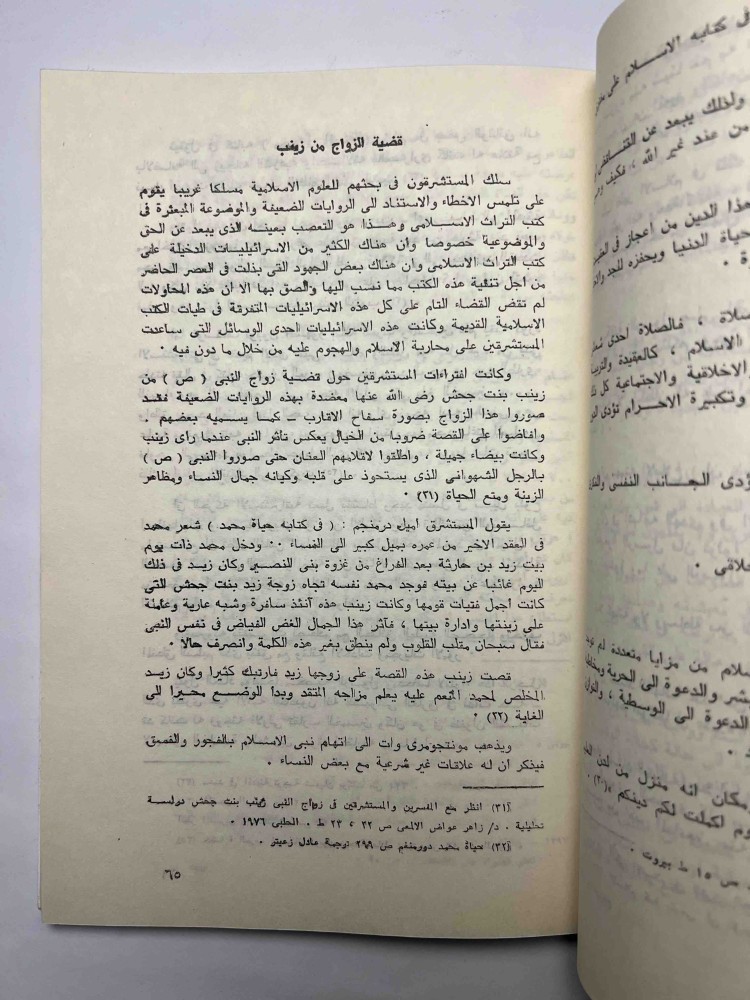 قضية الزواج من زينب
سلك المستشرقون في بحثهم للعلوم الاسلامية مسلكا غريبا يقوم
على تلمس الاخطاء والاستناد الى الروايات الضعيفة والموضوعة المبعثرة في
كتب التراث الاسلامى وهذا هو التعصب بعينه الذى يبعد عن الحق
والموضوعية خصوصا وان هناك الكثير من الاسرائيليات الدخيلة على
كتب التراث الاسلامى وان هناك بعض الجهود التى بذلت في العصر الحاضر
من اجل تنقية هذه الكتب مما نسب اليها والصق بها الا ان هذه المحاولات
لم تقض القضاء التام على كل هذه الاسرائيليات المتفرقة في طيات الكتب
الاسلامية القديمة وكانت هذه الاسرائيليات احدى الوسائل التى ساعدت
المستشرقين على محاربة الاسلام والهجوم عليه من خلال ما دون فيه .
وكانت افتراءات المستشرقين حول قضية زواج النبى ( ص ) من
زينب بنت جحش رضى الله عنها معضدة بهذه الروايات الضعيفة فقد
صوروا هذا الزواج بصورة سفاح الاقارب ــ كما يسميه بعضهم .
وافاضوا على القصة ضروبا من الخيال يعكس تأثر النبى عندما راى زينب
وكانت بيضاء جميلة ، واطلقوا لاقلامهم العنان حتى صوروا النبى ( ص )
بالرجل الشهوانى الذى يستحوذ على قلبه وكيانه جمال النساء ومظاهر
الزينة ومتع الحياة (٣١) .
يقول المستشرق اميل درمنجم : ( في كتابه حياة محمد ) شعر محمد
في العقد الاخير من عمره بميل كبير الى النساء . . ودخل محمد ذات يوم
بيت زيد بن حارثة بعد الفراغ من غزوة بنى النضير وكان زيد في ذلك
اليوم غائبا عن بيته فوجد محمد نفسه تجاه زوجة زيد بنت جحش التى
كانت أجمل فتيات قومها وكانت زينب هذه آنئذ سافرة وشبه عارية وعاملة
على زينتها وادارة بيتها ، فآثر هذا الجمال الغض الفياض في نفس النبى
فقال سبحان مقلب القلوب ولم ينطق بغير هذه الكلمة وانصرف حالا .
قصت زينب هذه القصة على زوجها زيد فارتبك كثيرا وكان زيد
المخلص لمحمد المنعم عليه يعلم مزاجه المتقد وبدأ الوضع محيرا الى
الغاية (٣٢) .
ويذهب مونتجومرى وات الى اتهام نبى الاسلام بالفجور والفسق
فيذكر ان له علاقات غير شرعية مع بعض النساء .
(٣١) انظر مع المفسرين والمستشرقين في زواج النبى زينب بنت جحش دراسة
تحليلية . د/ زاهر عواض الالمعى ص ٢٢ ، ٢٣ ط . الحلبى ١٩٧٦ .
(٣٢) حياة محمد دورمنغم ص ٢٩٦ ترجمة عادل زعيتر .
٦٥
في كتابه الاسلام على
ولذلك يبعد عن
من عند غير الله ، فكيف
هذا الدين من أعجاز في
حياة الدنيا ويحفزه للجد
، فالصلاة احدى
الاسلام ، كالعقيدة
الاخلاقية والاجتماعية كل
وتكبيرة الاحرام تؤدى
الجانب النفسى
من مزايا متعددة لم
والدعوة الى الحرية
الدعوة الى الوسطية ،
انه منزل من لدن
اكملت لكم دينكم » (٣٠) .
ص ١٥ ط بيروت .